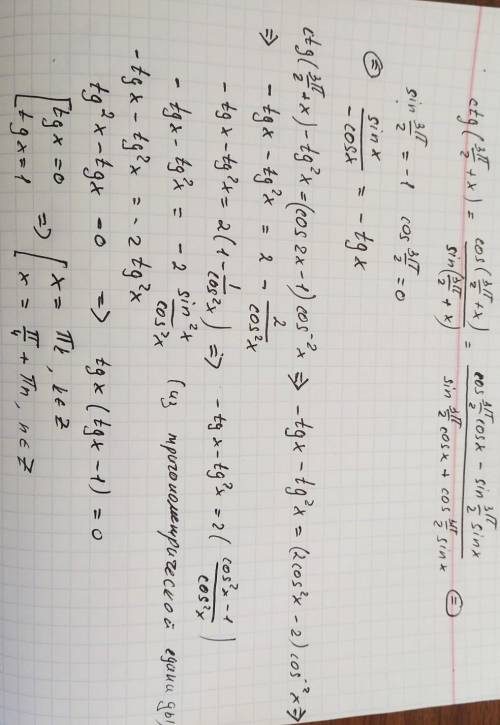 ctg(3π/2 + x) = cos(3π/2 + x) / sin(3π/2 + x) = (cos 3π/2 cosx − sin 3π/2 sinx) / (sin 3π/2 cosx + cos 3π/2 sinx) ⊜
sin 3π/2 = −1 cos 3π/2 = 0
⊜ sinx / −cosx = −tgx
ctg(3π/2 + x) − tg²x = (cos2x − 1) cos⁻²x ⇒ −tgx − tg²x = (2cos²x − 2) cos⁻²x ⇒
⇒ −tgx − tg²x = 2 − 2/cos²x
−tgx − tg²x = 2(1 − 1/cos²x) ⇒ −tgx − tg²x = 2((cos²x − 1)/cos²x)
−tgx − tg²x = −2 sin²x/cos²x (из тригонометрической единицы
−tgx − tg²x = −2tg²x
tg²x − tgx = 0 ⇒ tgx(tgx − 1) = 0
[ tgx = 0 ⇒ [ x = πk, k ∈ Z
[ tgx = 1 [ x = π/4 + πn, n ∈ Z